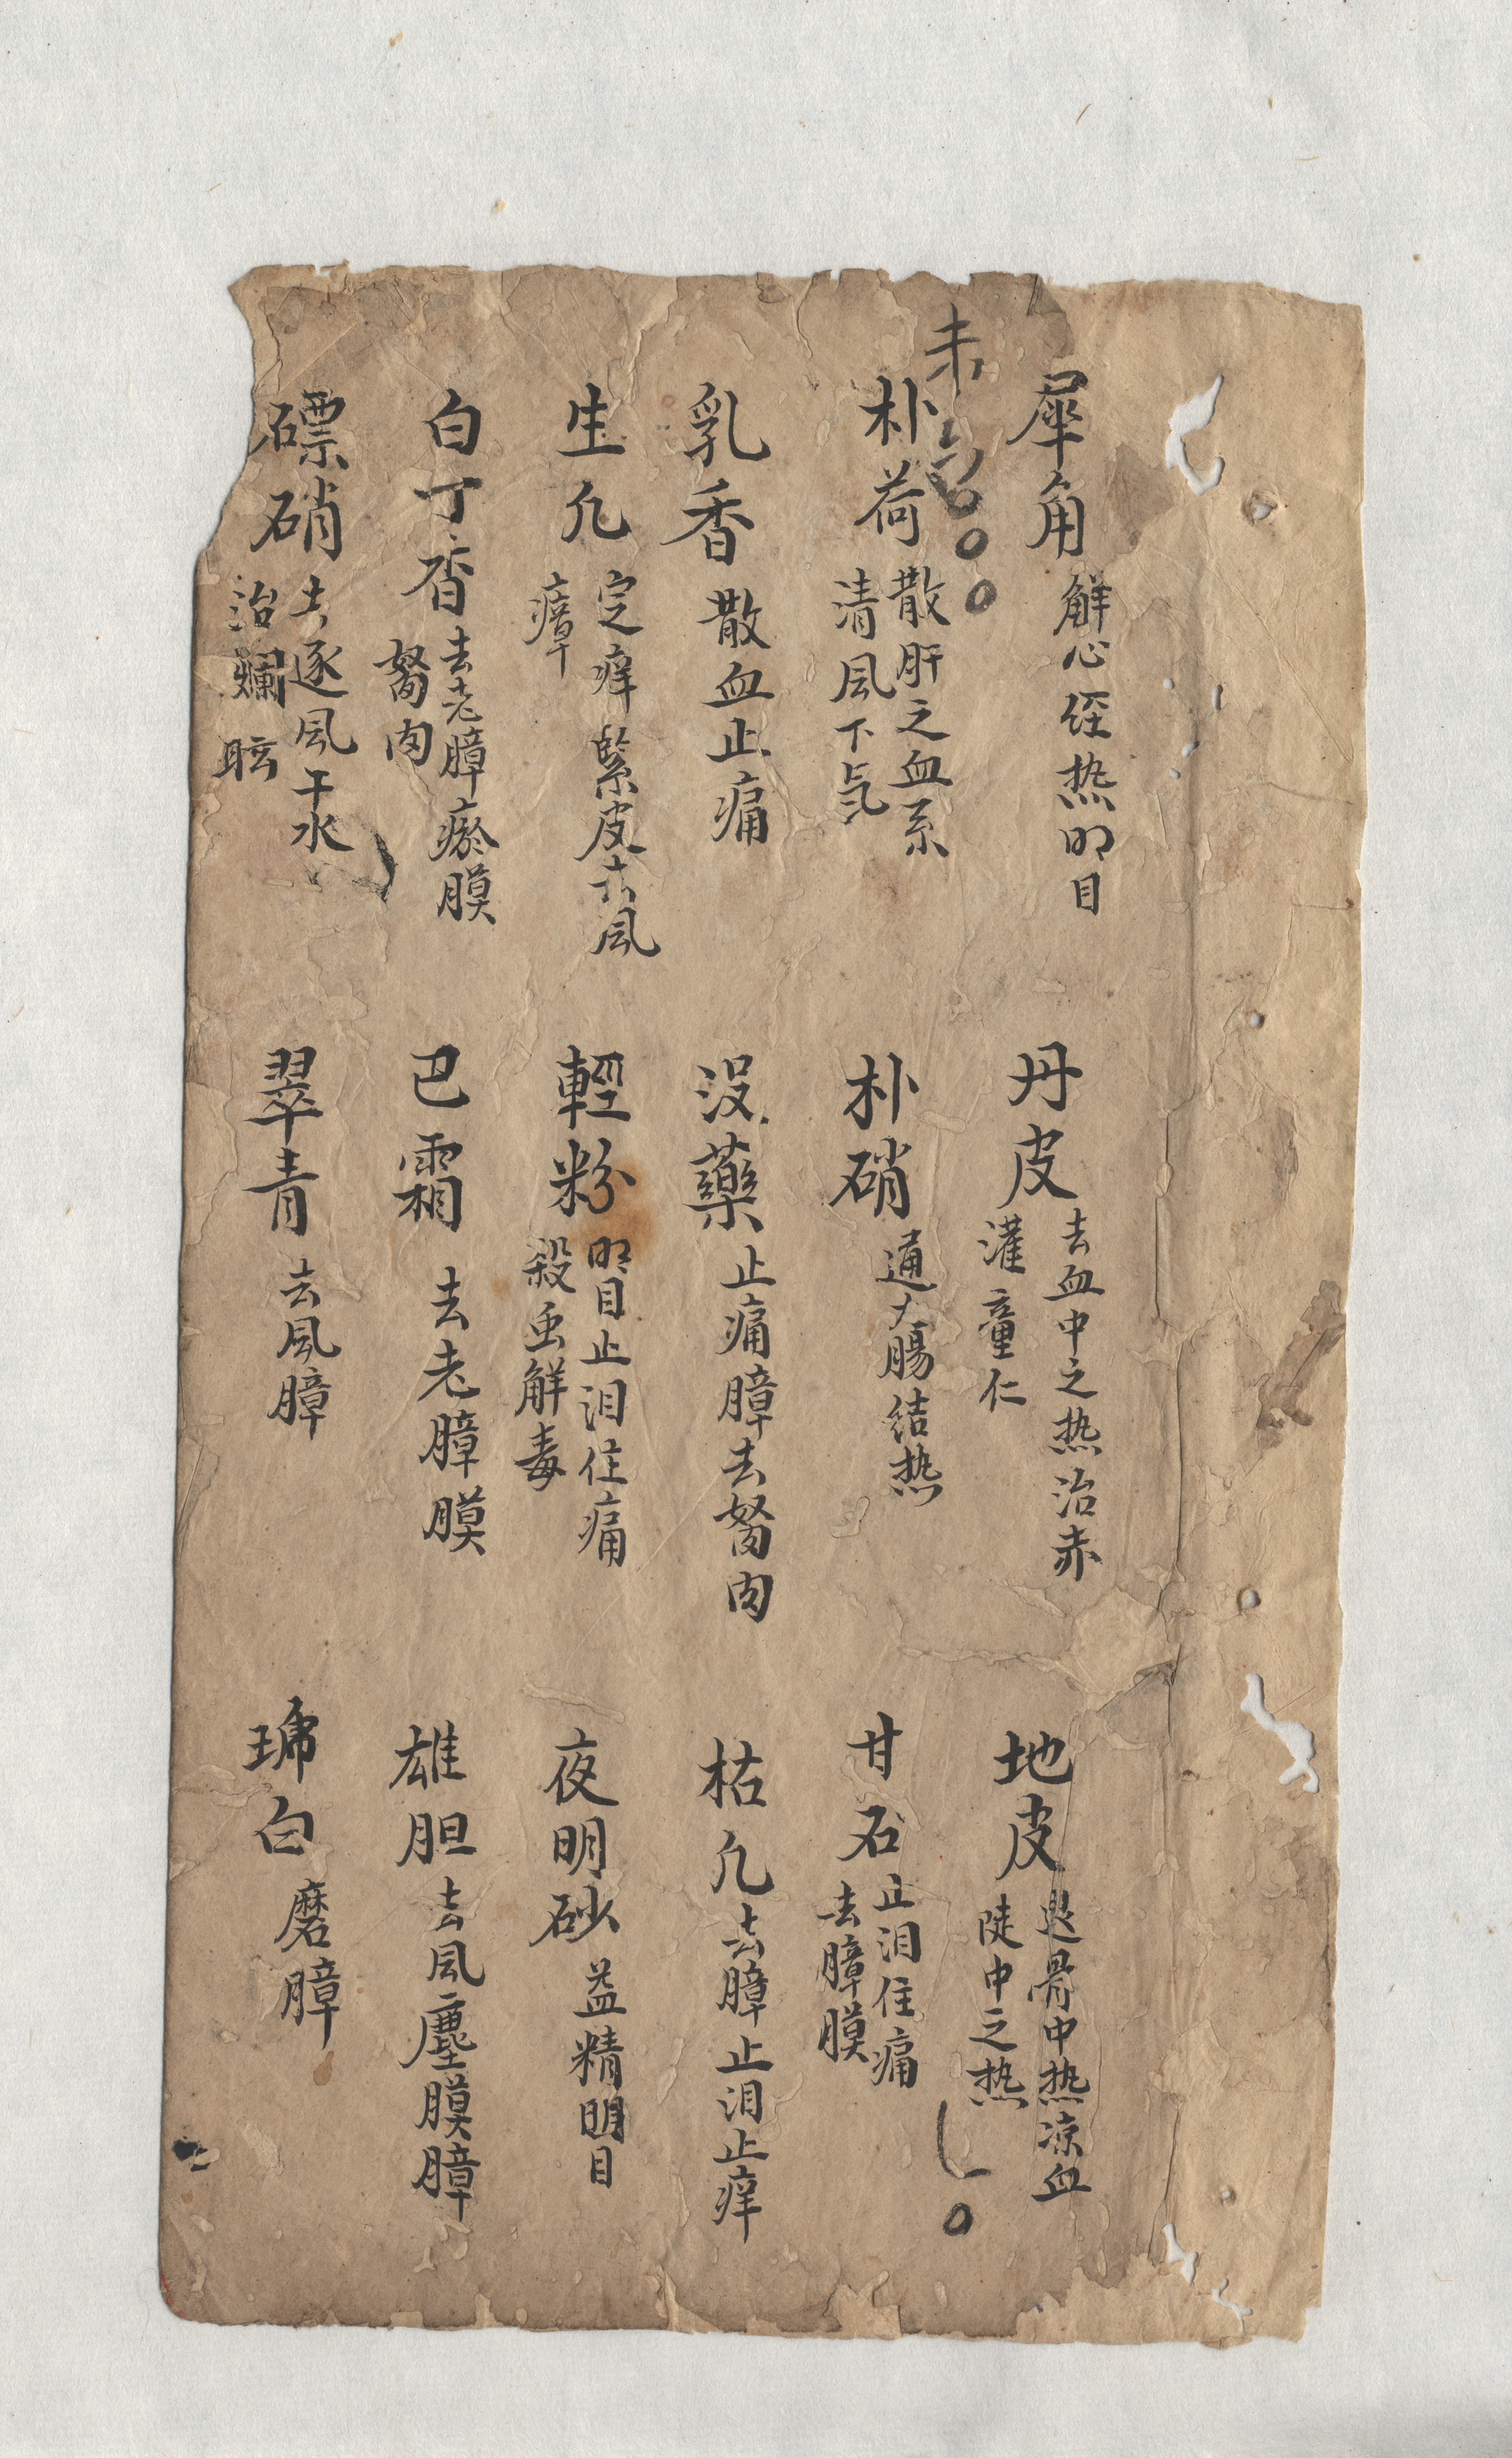 犀角 解心经热明目
丹皮 去血中之热治赤
灌童仁
地皮 退骨中热凉血
陡中之热
未
朴荷 散肝之血系
清風下気
朴硝 通大腸结热
甘石 止泪住痛
去膧膜
乳香 散血止痛
没藥 止痛膧去胬肉
枯凢 去膧止泪止痒
生凢 定痒緊皮去風
瘴
輕粉 明目止泪住痛
殺虫解毒
夜明砂 益精明目
白丁香 去老膧瘀膜
胬肉
巴霜 去老膧膜
雄胆 去風塵膜膧
磦硝 去逐風干水
治爛眩
翠青 去風膧
珎白 磨膧